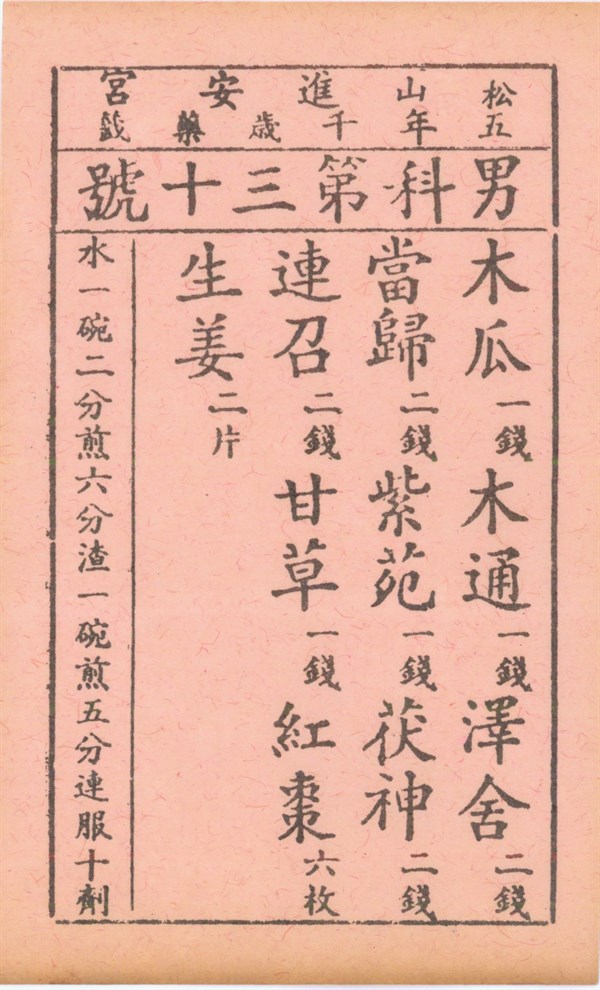 松山進安宮
五年千歲藥籤
男科第三十號
木瓜一錢 木通一錢 澤舍二錢
當歸二錢 紫苑一錢 茯神二錢
連召二錢 甘草一錢 紅棗六枚
生姜二片
水一碗二分煎六分渣一碗煎五分連服十劑